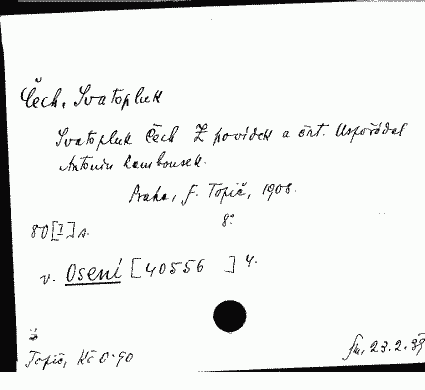 Čech, Svatopluk
Svatopluk Čech Z povídek a črt. Uspořádal
Antonín Kambousek.
Praha, F. Topič, 1908.
8°
80[I]s.
v. Osení [40556 ] 4.
Topič, Kč 0·90
fm, 23.2.39